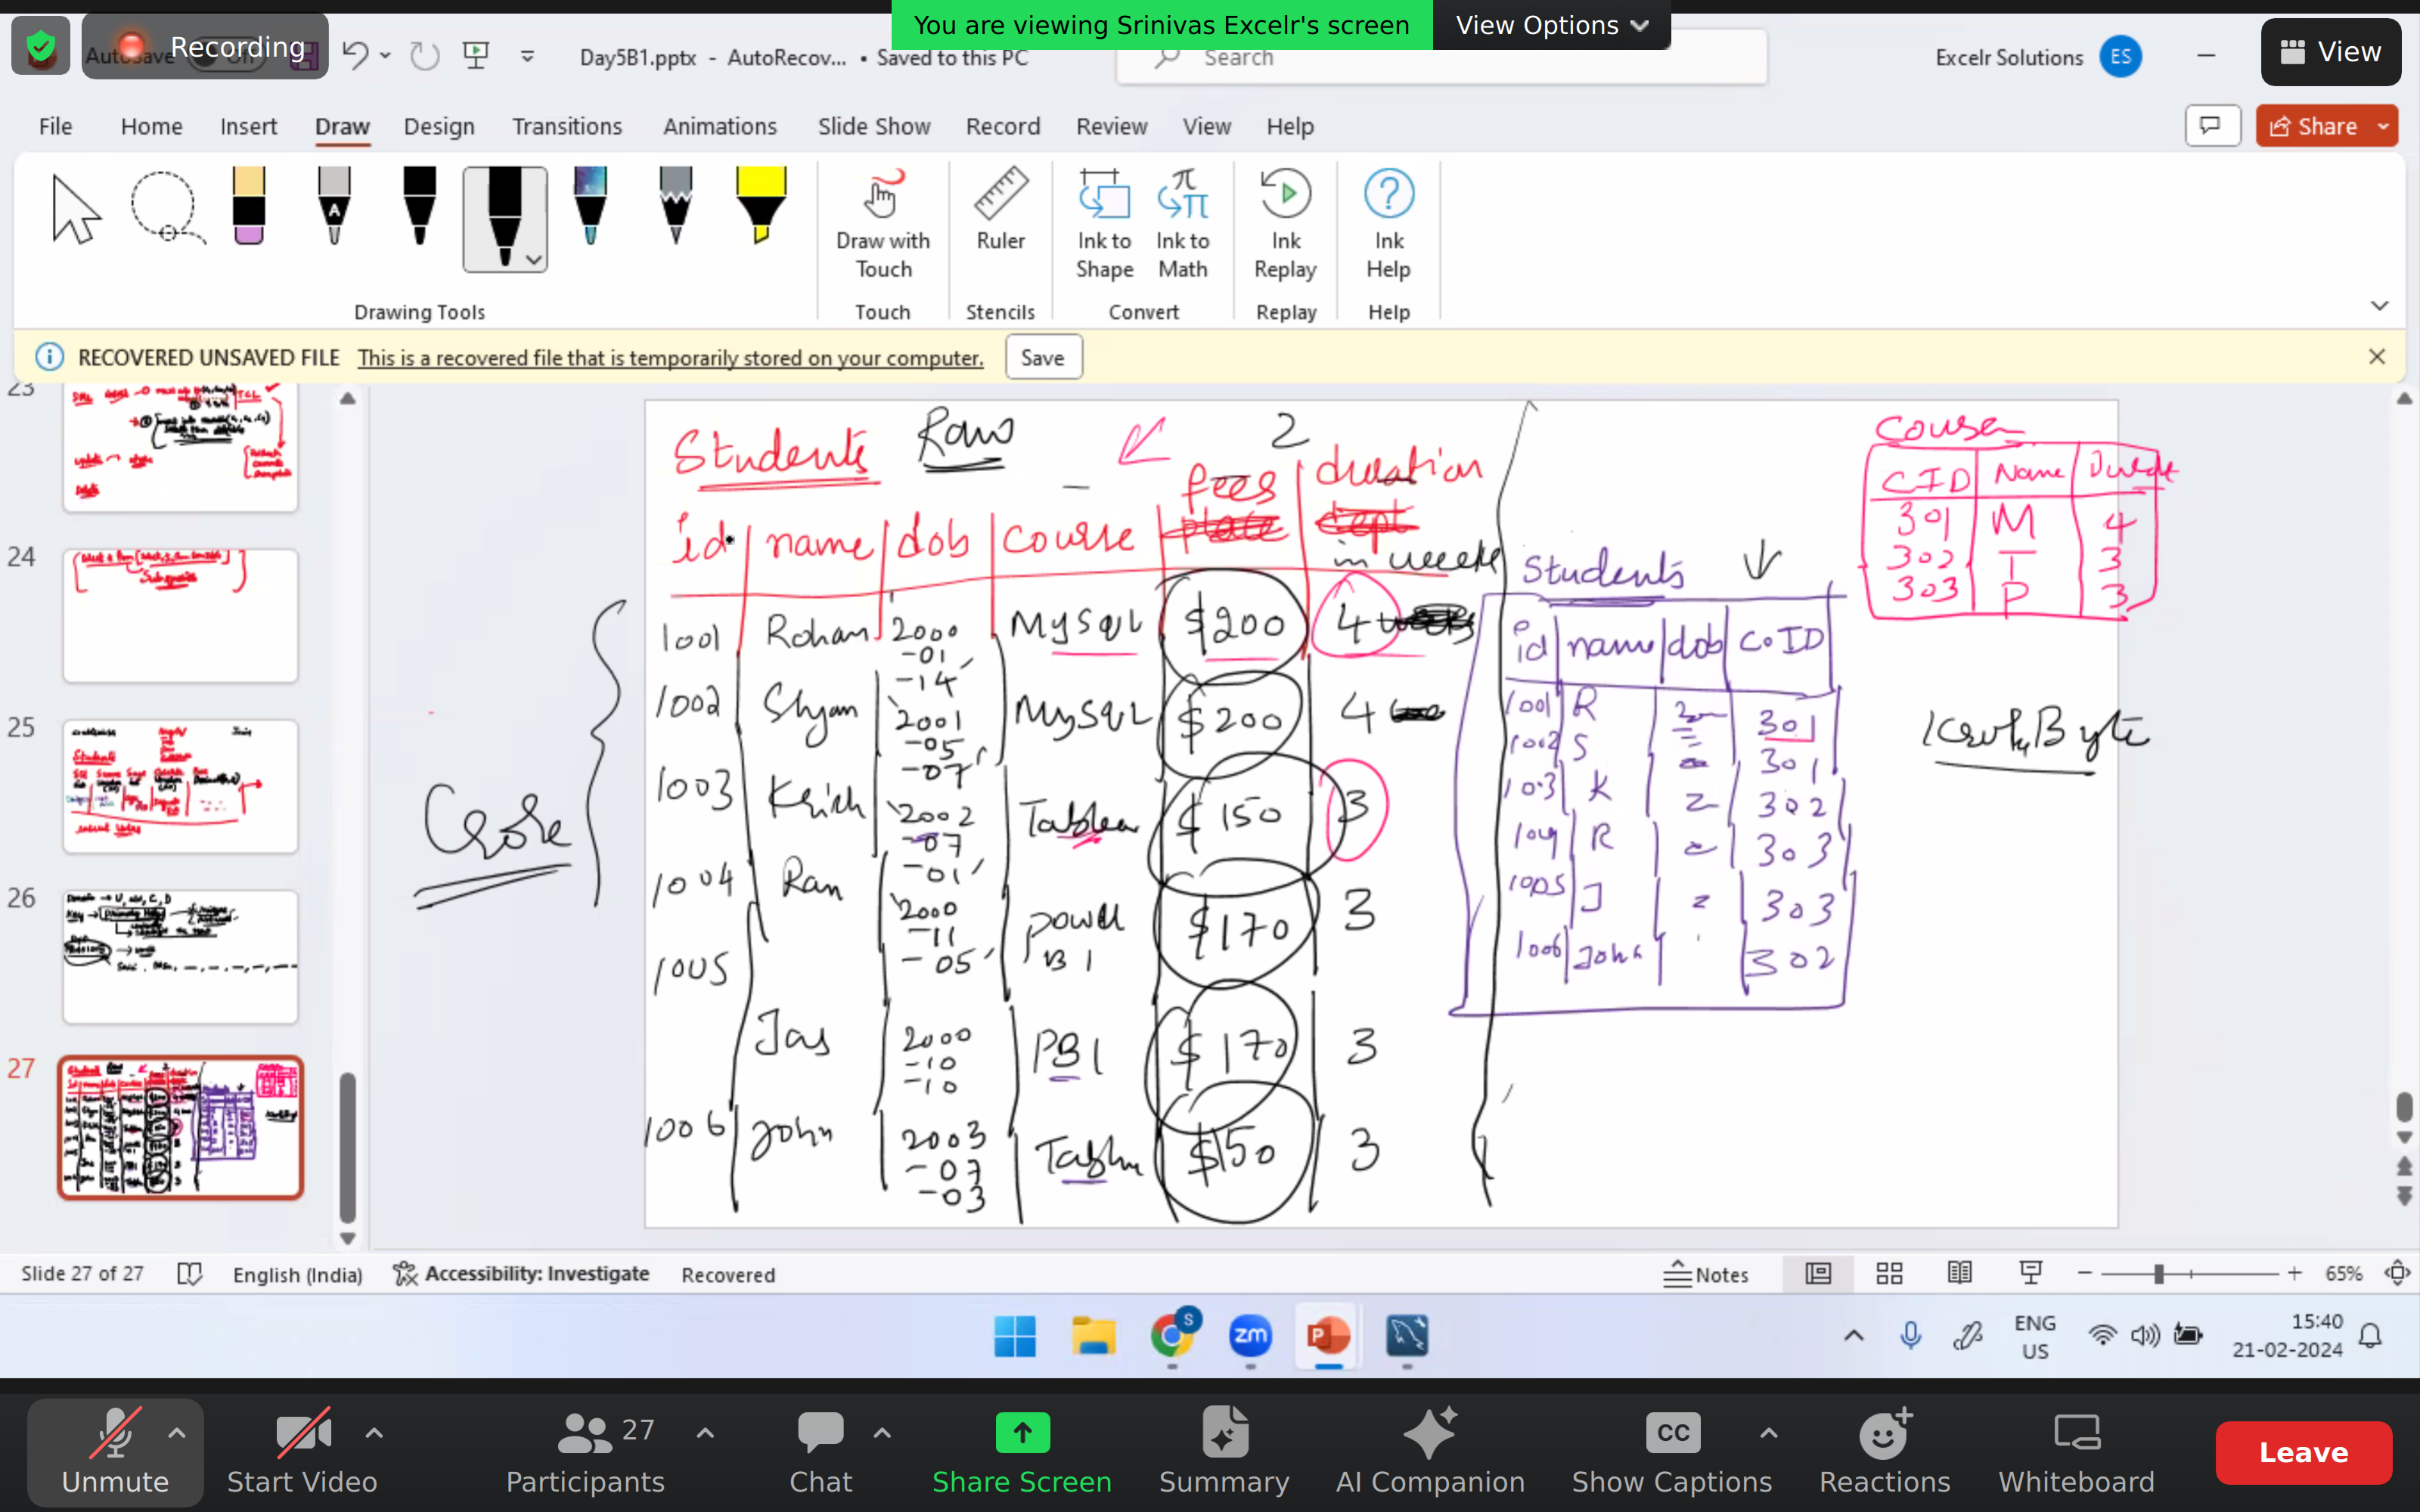 You are viewing Srinivas Excelr's screen View Options
Recording
AutoSave
Day5B1.pptx - AutoRecov... • Saved to this PC
Search
Excelr Solutions ES
View
File Home Insert Draw Design Transitions Animations Slide Show Record Review View Help
Share
Draw with Touch
Ruler
Ink to Shape
Ink to Math
Ink Replay
Ink Help
Drawing Tools Touch Stencils Convert Replay Help
RECOVERED UNSAVED FILE This is a recovered file that is temporarily stored on your computer. Save
23
24
25
26
27
Students Raw 2
id name dob course fees duration
in weeks
1001 Rohan 2000-01-14 MySQL $200 4
1002 Shyam 2001-05-07 MySQL $200 4
1003 Krich 2002-07-01 $150 3
1004 Ram 2000-11-05 Power BI $170 3
1005 Jas 2000-10-10 PBI $170 3
1006 John 2003-07-03 $150 3
Students
id name dob CoID
1001 R 301
1002 S 301
1003 K 302
1004 R 303
1005 J 303
1006 John 302
CID Name
301 M 4
302 T 3
303 P 3
Slide 27 of 27 English (India) Accessibility: Investigate Recovered Notes 65%
S
zm
P
ENG
US
15:40
21-02-2024
Unmute
Start Video
27
Participants
Chat
Share Screen
Summary
AI Companion
CC
Show Captions
Reactions
Whiteboard
Leave